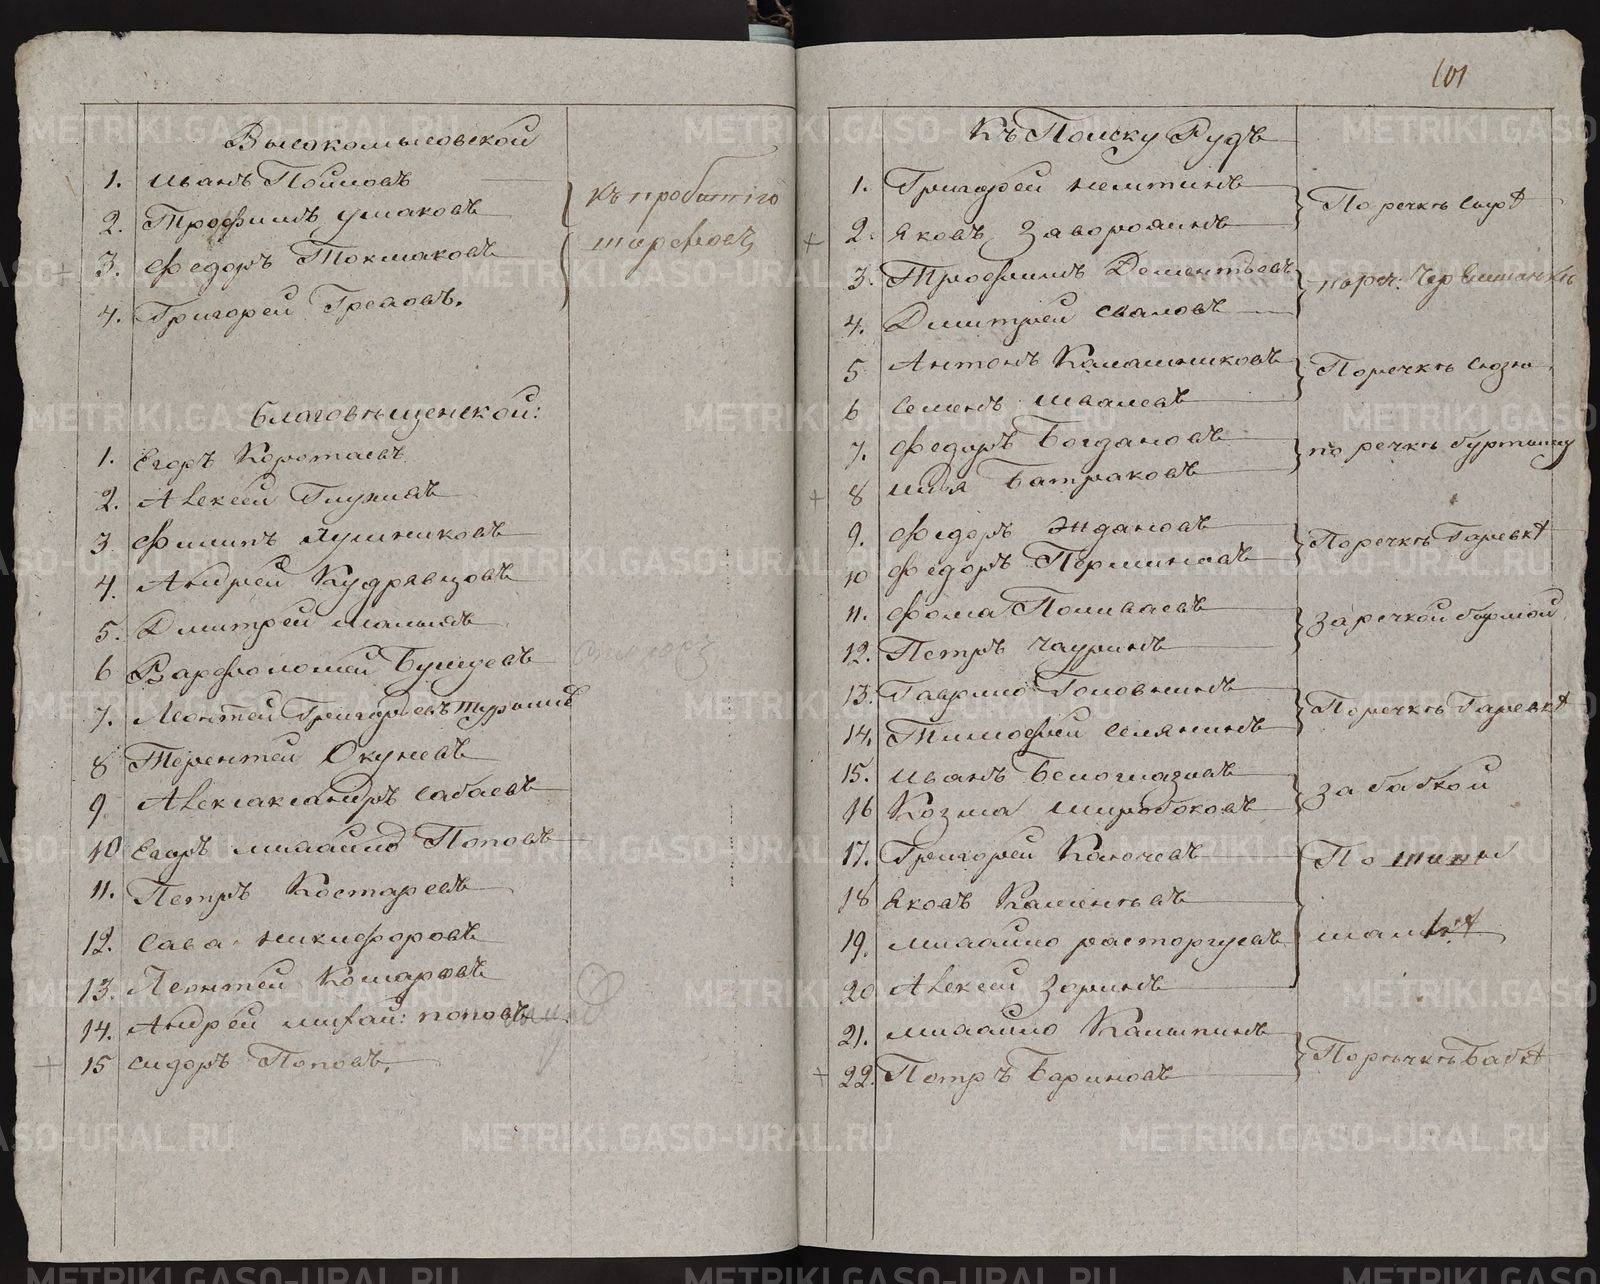 Высокомысовской
1. Иванъ Поймовъ
2. Трофимъ Ушаковъ
3. Федоръ Токмаковъ
4. Григорей Грехов.
Къ пробитію
шорфовъ
Благовѣщенской:
1. Егоръ Коротаевъ
2. Алексей Глуховъ
3 Филипъ Лушниковъ
4. Андрей Кудрявцовъ
5. Дмитрей
6 Варфоломей Бушуевъ
7. Леонтей Григорьевъ
8 Терентей Окуневъ
9. Александръ Сабаевъ
10 Егоръ Михайло Поповъ
11. Петръ Костаревъ
12. Сава Никифоровъ
13. Леонтей Комаровъ
14. Андрей Михай: Поповъ
15 Сидоръ Поповъ.
101
Къ Поиску Рудъ
1. Григорей
2. Яковъ
3. Трофимъ Дементьевъ
4. Дмитрей
5 Антонъ Калашниковъ
6 Семенъ
7. Федоръ Богдановъ
8 Илья Батраковъ
9. Федоръ Ждановъ
10 Федоръ Перминовъ
11. Фома Поливаевъ
12. Петръ Чауринъ
13. Гаврило Головнинъ
14. Тимофей Селянинъ
15. Иванъ Белоглазовъ
16 Козма Широбоковъ
17. Григорей Калючевъ
18 Яковъ Каменьевъ
19. Михайло Расторгуевъ
20 Алексей Зоринъ
21. Михайло Калыпинъ
22. Петръ Бариновъ
По речкѣ Сырѣ
По речкѣ Сюзю
по речкѣ Буртыму
По речкѣ Гаревкѣ
За речкой Бырмой
По речкѣ Гаревкѣ
За бабкой
По
По рѣчкѣ Бабкѣ
METRIKI.GASO-URAL.RU